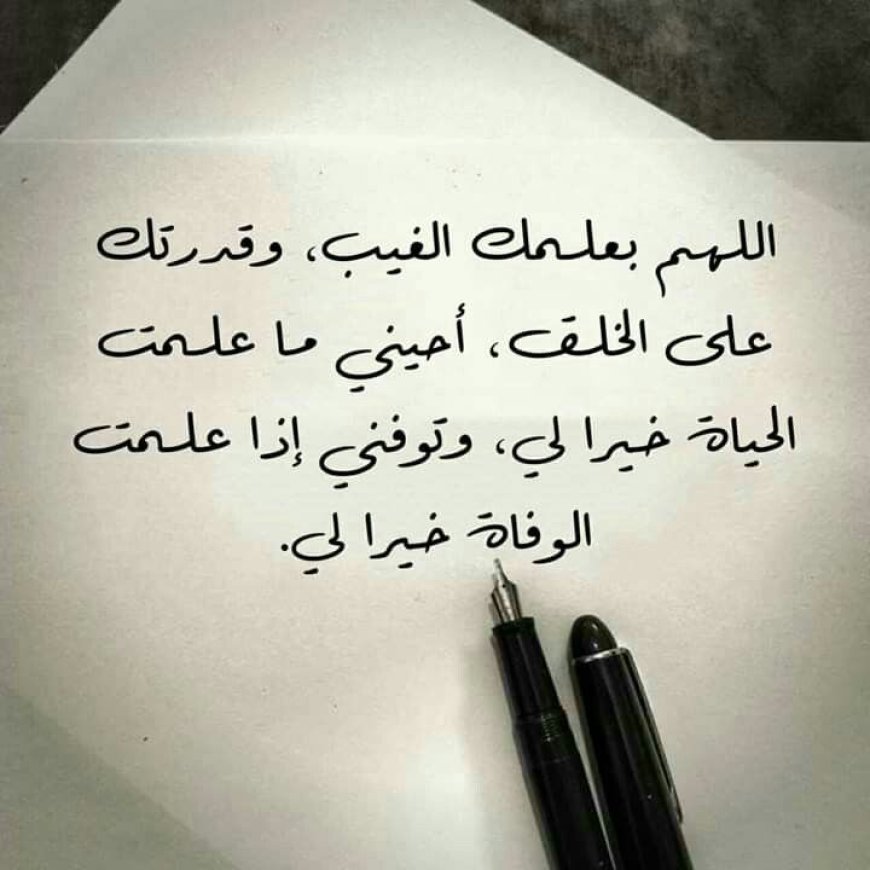 اللهم بعلمك الغيب، وقدرتك
على الخلق، أحيني ما علمت
الحياة خيرا لي، وتوفني إذا علمت
الوفاة خيرا لي.